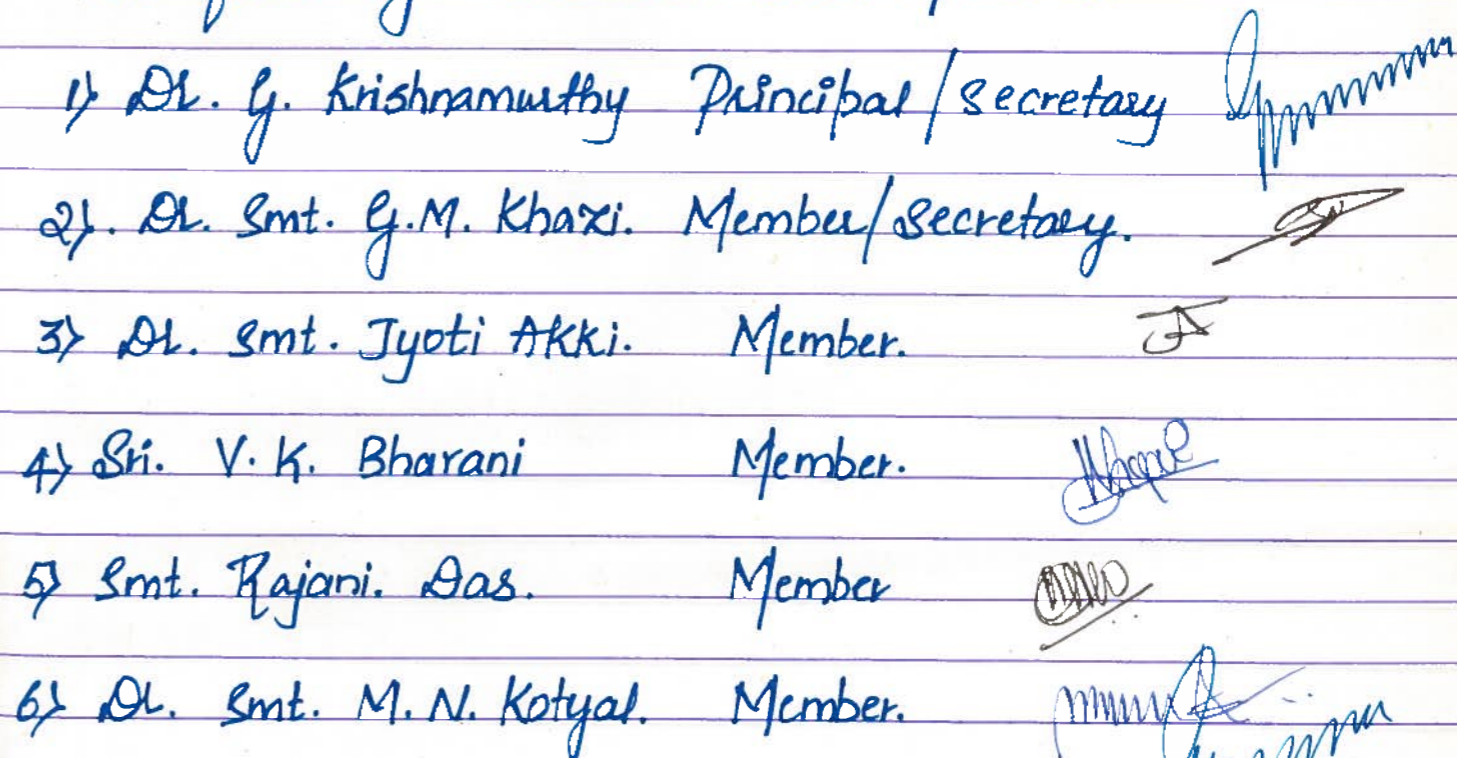 1) Dr. G. Krishnamurthy Principal / Secretary
2). Dr. Smt. G.M. Khazi. Member/Secretary.
3) Dr. Smt. Jyoti Akki. Member.
4) Sri. V. K. Bharani Member.
5) Smt. Rajani. Das. Member
6) Dr. Smt. M. N. Kotyal. Member.